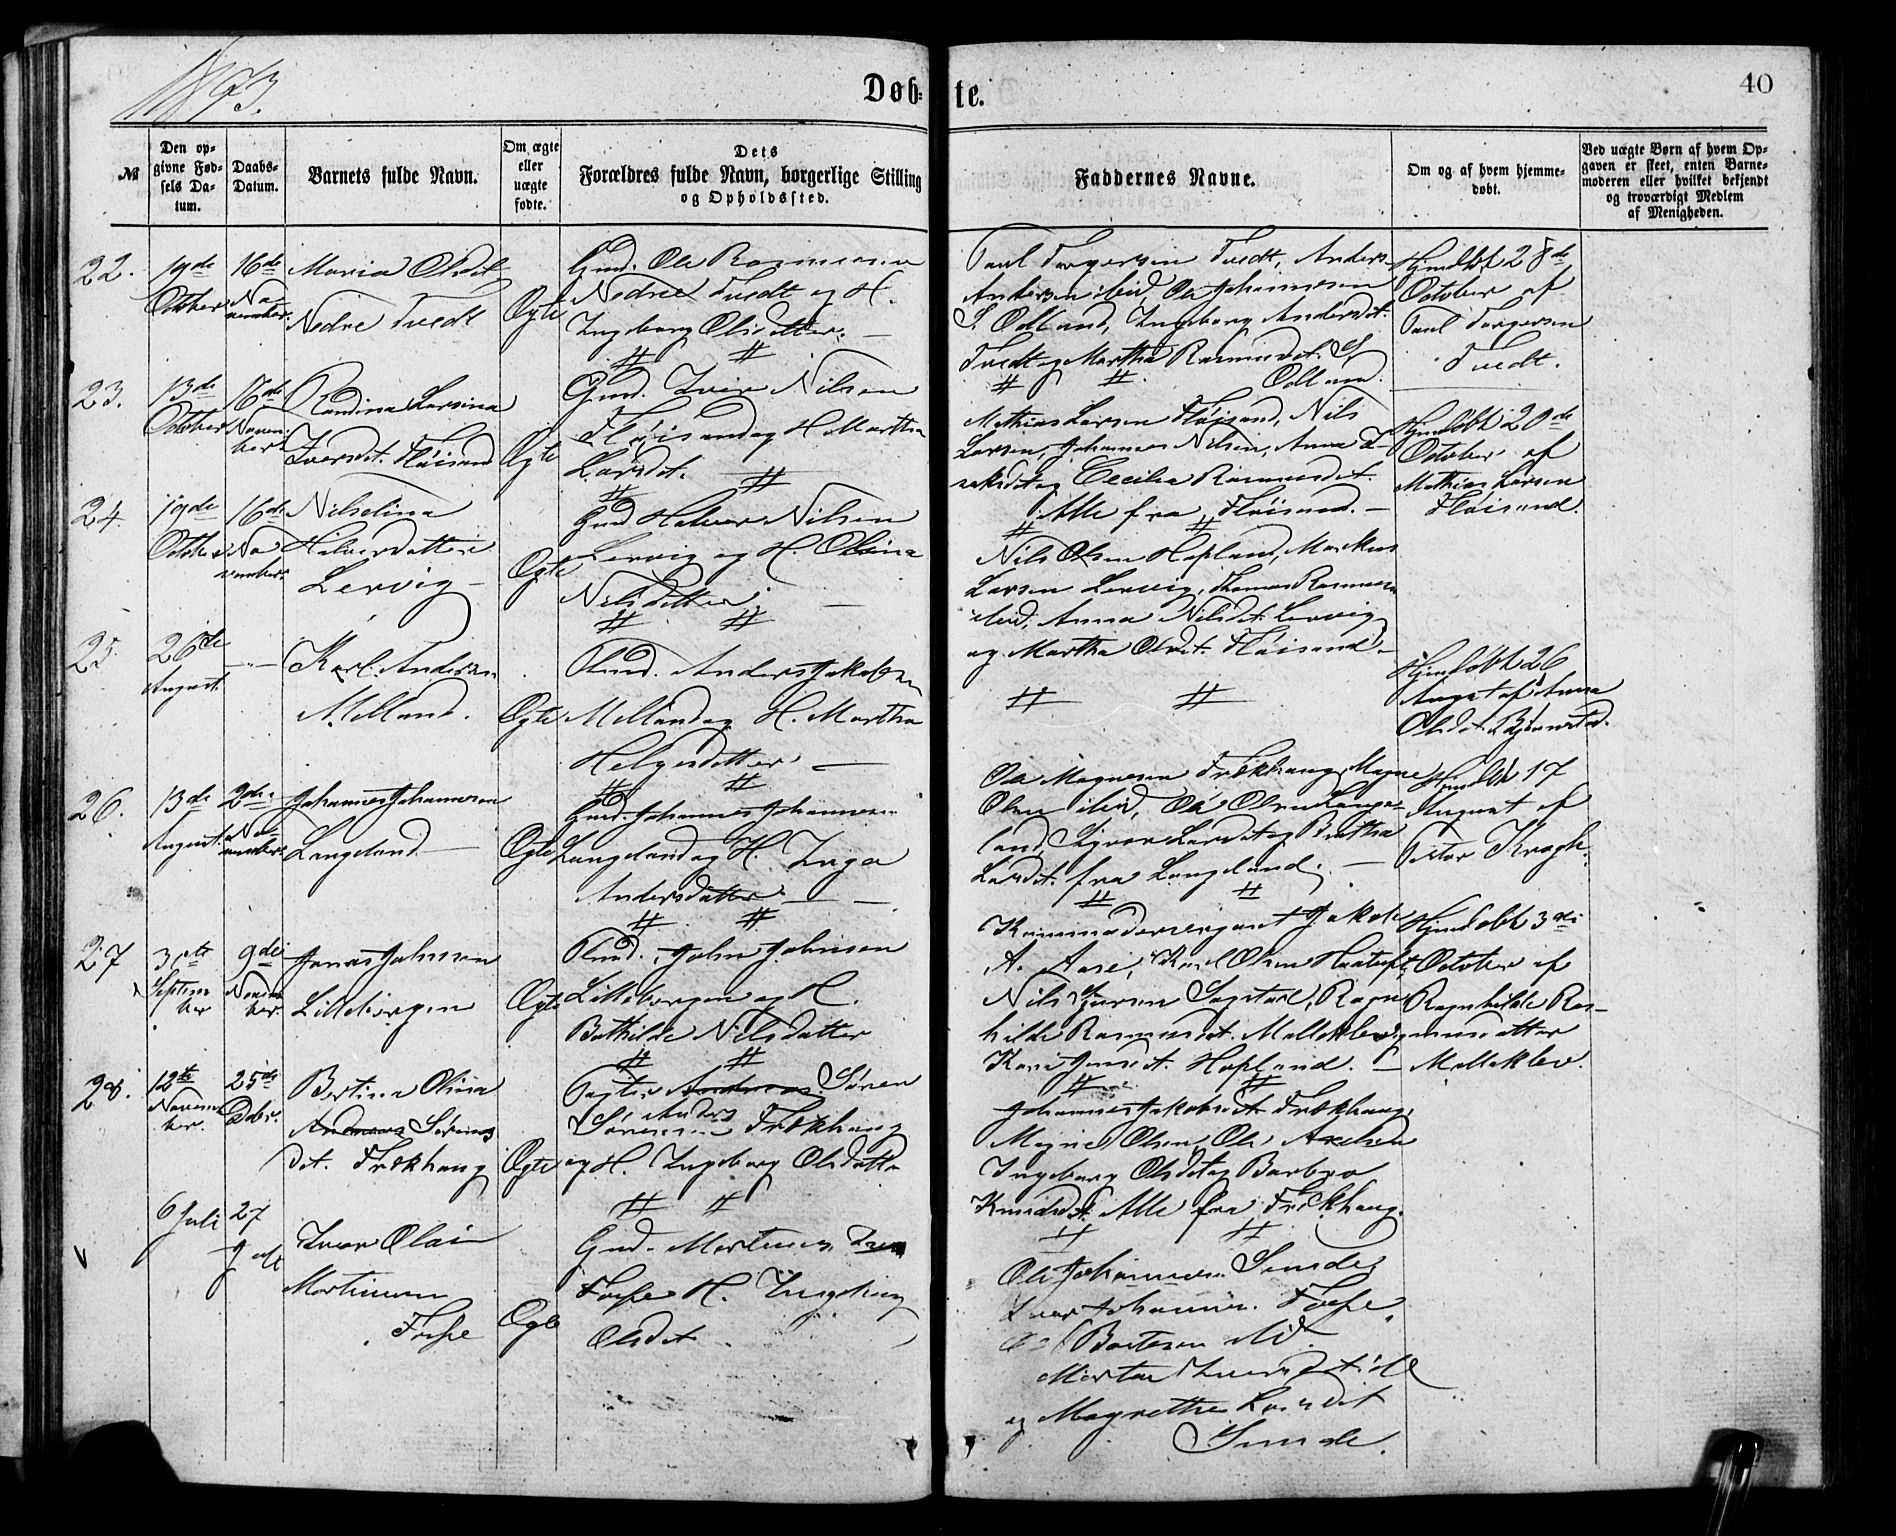 1873.
Døb=
te.
40
№
Den op=
givne Fød=
sels Da=
tum.
Daabs=
Datum.
Barnets fulde Navn.
Om ægte
eller
uægte
fødte.
Dets
Forældres fulde Navn, borgerlige Stilling
og Opholdssted.
Faddernes Navne.
Om og af hvem hjemme=
døbt.
Ved uægte Børn af hvem Op=
gaven er skeet, enten Barne=
moderen eller hvilket bekjendt
og troværdigt Medlem
af Menigheden.
22.
19de
October
16de
No
vember.
Maria Olsdt
Nedre Tvedt
Ægte
Gmd. Ole Rasmussen
Nedre Tvedt og H.
Ingeborg Olsdatter. —
Paul Torgersen Tvedt, Anders
Andersen ibid, Ole Johannesen
S. Odland, Ingeborg Andersdt.
Tvedt og Martha Rasmusdt. S
Odland.
Hjemdøbt 28de
October af
Paul Torgersen
Tvedt.
23.
13de
October
16de
Novem
ber
Randina Larsina
Iversdt. Fløisand
Ægte
Gmd. Iver Nilsen
Fløisand og H. Martha
Larsdt.
Mathias Larsen Fløisand, Nils
Larsen, Johannes Nilsen, Anna I-
saksdt og Cecilia Rasmusdt.
Alle fra Fløisand. —
Hjemdøbt 20de
October af
Mathias Larsen
Fløisand.
24.
19de
October
16de
No
vember
Nilselina
Halvorsdatter
Lervig —
Ægte
Gmd Halvor Nilsen
Lervig og H. Olina
Nilsdatter. —
Nils Olsen Hopland, Markus
Larsen Lervig, Thomas Rasmussen
ibid, Anna Nilsdt. Lervig
og Martha Olsdt. Fløisand. —
25.
26de
August.
— " —
Karl Andersen
Melland.
Ægte
Anders Jakobsen
Melland og H. Martha
Helgesdatter —
Hjemdøbt 26
August af Anna
Olsdt.
26.
13de
August.
2de
No
vember
Johannes Johannesen
Langeland —
Ægte
Gmd. Johannes Johannesen
Langeland og H. Inga
Andersdatter — —
Ole Magnesen Frækhaug, Magne
Olsen ibid, Ole Olsen Lange-
land, Larsdt og Bertha
Larsdt. fra Langeland. —
Hjemdøbt 17
August af
Pastor Krogh.
27
3die
Septem
ber
9de
Novem
ber.
Jonas Johnsen
Lillebergen
Ægte
John Johnsen
Lillebergen og H.
Bothilde Nilsdatter
Kommandersergeant Jakob
A. Aase, Karl Olsen
Nils, Ragn
hilde Rasmusdt. Molleklev og
Kari Jensdt. Hopland. —
Hjemdøbt 3die
October af
Ragnhilde Ras-
musdatter
Molleklev.
28.
12te
Novem
ber.
25de
Decbr.
Bertina Olina
Andreas Sørens
dt. Frækhaug
Ægte
Andreas Søren
Anders
Sørensen Frækhaug
og H. Ingeborg Olsdatter
Johannes Jakobsdt Frækhaug,
Magne Olsen, Ole Axelsen
Ingeborg Olsdt og Barbro
Knudsdt. Alle fra Frækhaug.
6 Juli
27
Juli
Iver Olai
Martinsen
Fosse
Ægte
Gmd. Martinus Iversen
Fosse H. Ingeborg
Olsdt.
Ole Johannesen Sunde,
Iver Johannes. Fosse,
Ole Bertesen ibid.
Marta Iversdt ibid
og Magrethe Larsdt
Sunde.